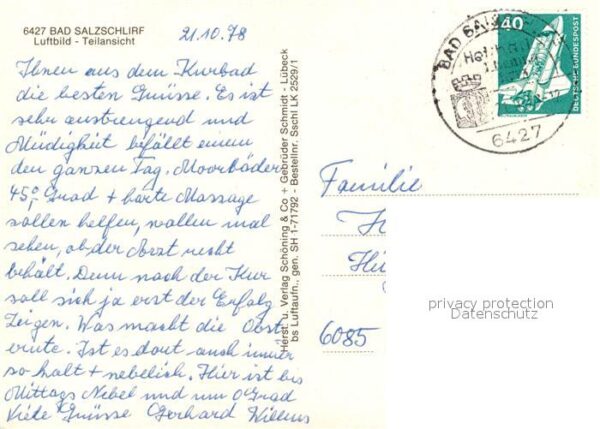 6427 BAD SALZSCHLIRF
Luftbild - Teilansicht
21.10.78
Ihnen aus dem Kurbad
die besten Grüsse. Es ist
sehr anstrengend und
Müdigkeit befällt einem
den ganzen Tag. Moorbäder
45,0 Grad + harte Massage
sollen helfen, wollen mal
sehen, ob der Arzt recht
behält. Denn nach der Kur
soll sich ja erst der Erfolg
zeigen. Was macht die Obst
ernte. Ist es dort auch immer
so kalt + nebelich. Hier ist bis
Mittags Nebel und um 0 Grad
Viele Grüsse Gerhard
Herst. u. Verlag Schöning & Co + Gebrüder Schmidt - Lübeck
bs Luftaufn., gen. SH 1-71792 - Bestellnr. Sschl LK 2529/1
40
DEUTSCHE BUNDESPOST
BAD
6427
Familie
6085
privacy protection
Datenschutz